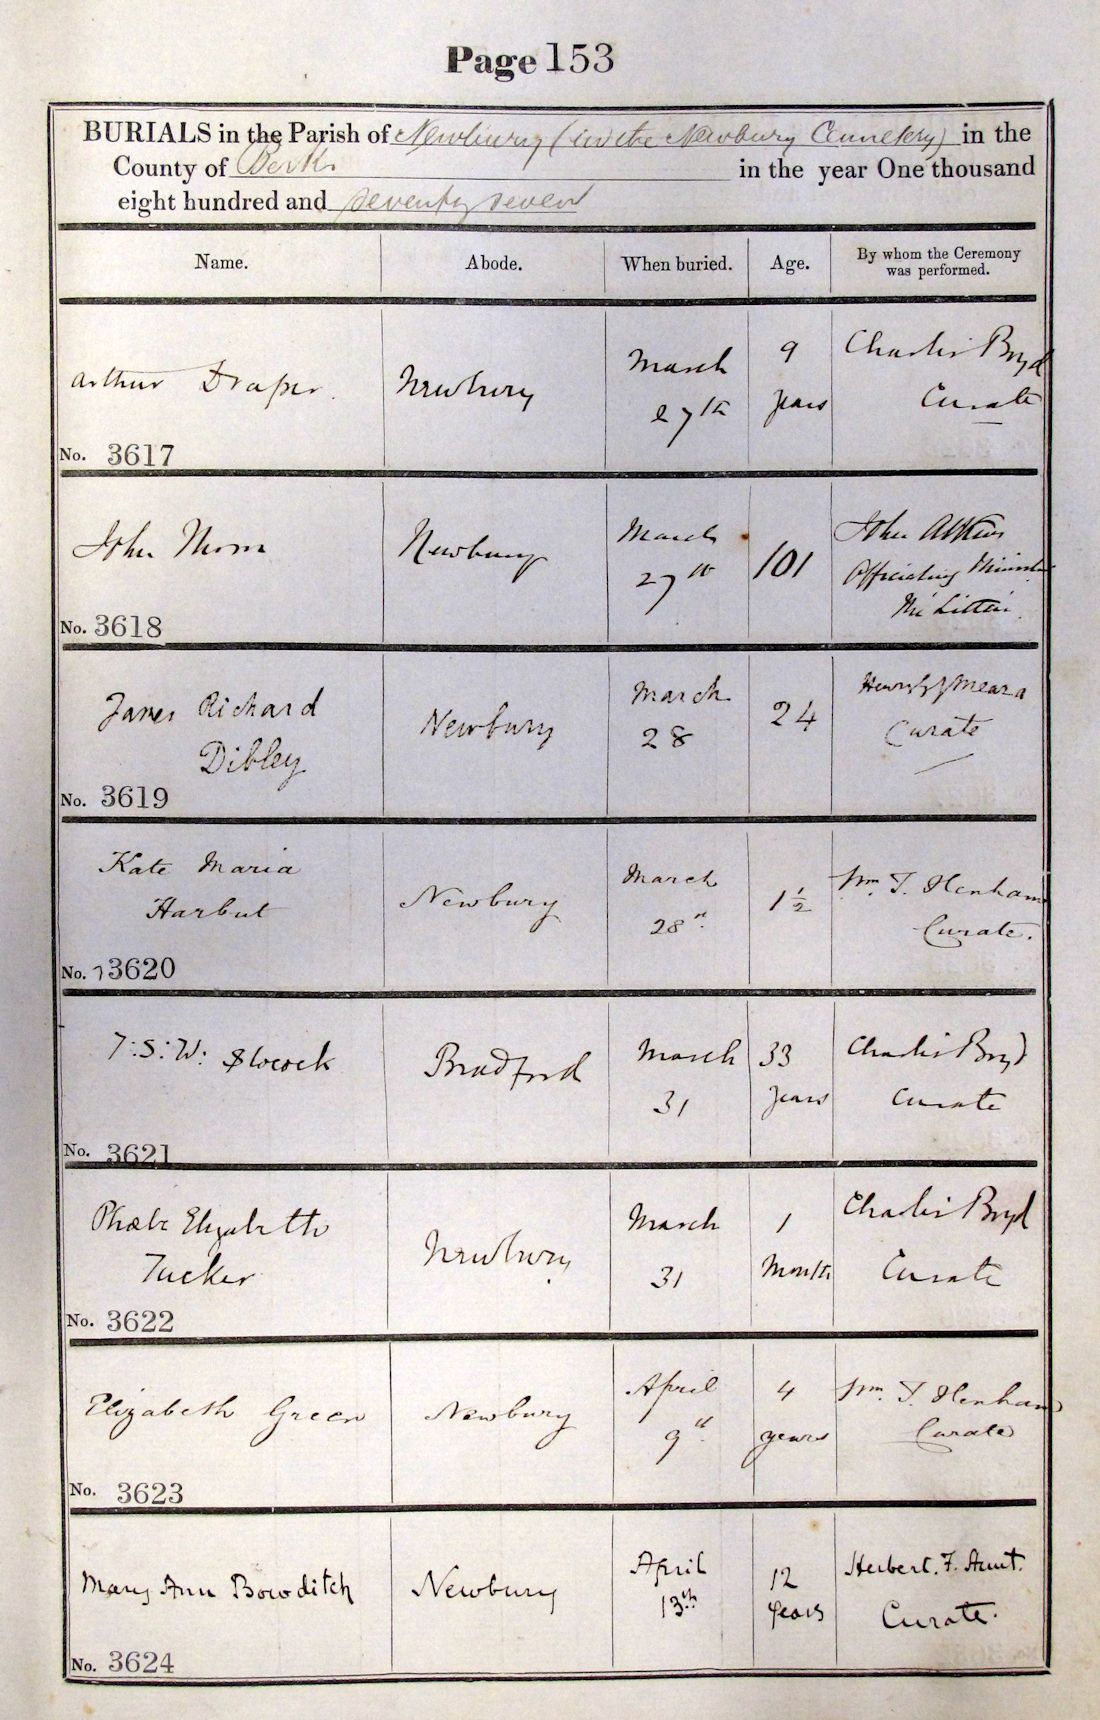 Page 153
BURIALS in the Parish of Newbury (in the Newbury Cemetery) in the
County of Berks in the year One thousand
eight hundred and seventy seven
Name. Abode. When buried. Age. By whom the Ceremony was performed.
Arthur Draper Newbury March 27th 9 years Charles Boyd Curate
No. 3617
John Newbury March 27th 101 John Officiating Minister
No. 3618
James Richard Dibley Newbury March 28 24 Curate
No. 3619
Kate Maria Harbut Newbury March 28th 1½ Wm. T. Henham Curate.
No. 3620
T. S. W. Slocock Bradford March 31 33 years Charles Boyd Curate
No. 3621
Phœbe Elizabeth Tucker Newbury March 31 1 Month Charles Boyd Curate
No. 3622
Elizabeth Green Newbury April 9th 4 years Wm. T. Henham Curate
No. 3623
Mary Ann Bowditch Newbury April 13th 12 years Herbert. F. Hunt. Curate.
No. 3624